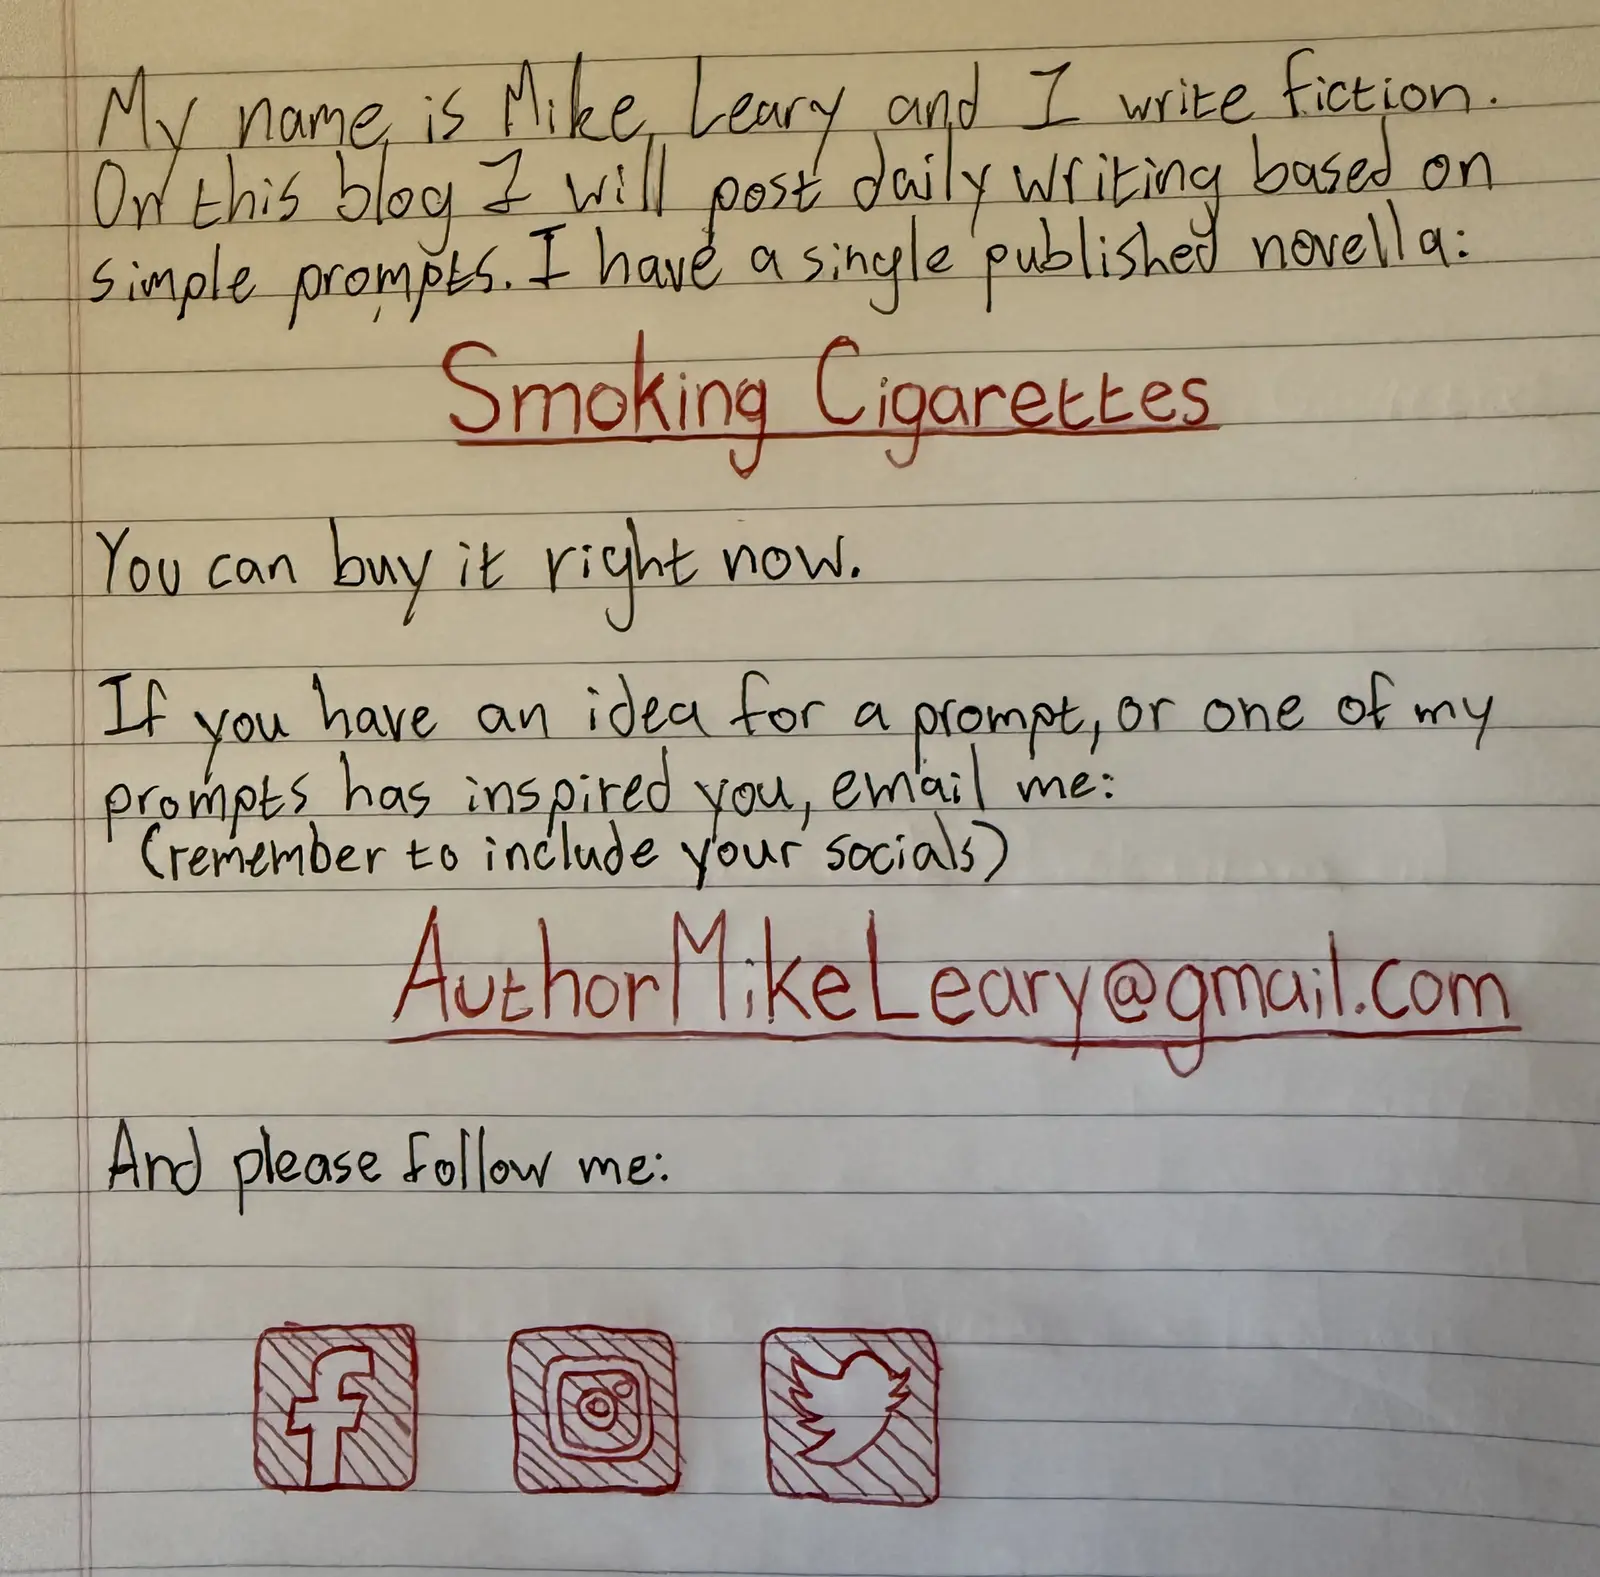 My name is Mike Leary and I write fiction.
On this blog I will post daily writing based on
simple prompts. I have a single published novella:
Smoking Cigarettes
You can buy it right now.
If you have an idea for a prompt, or one of my
prompts has inspired you, email me:
(remember to include your socials)
AuthorMikeLeary@gmail.com
And please follow me: